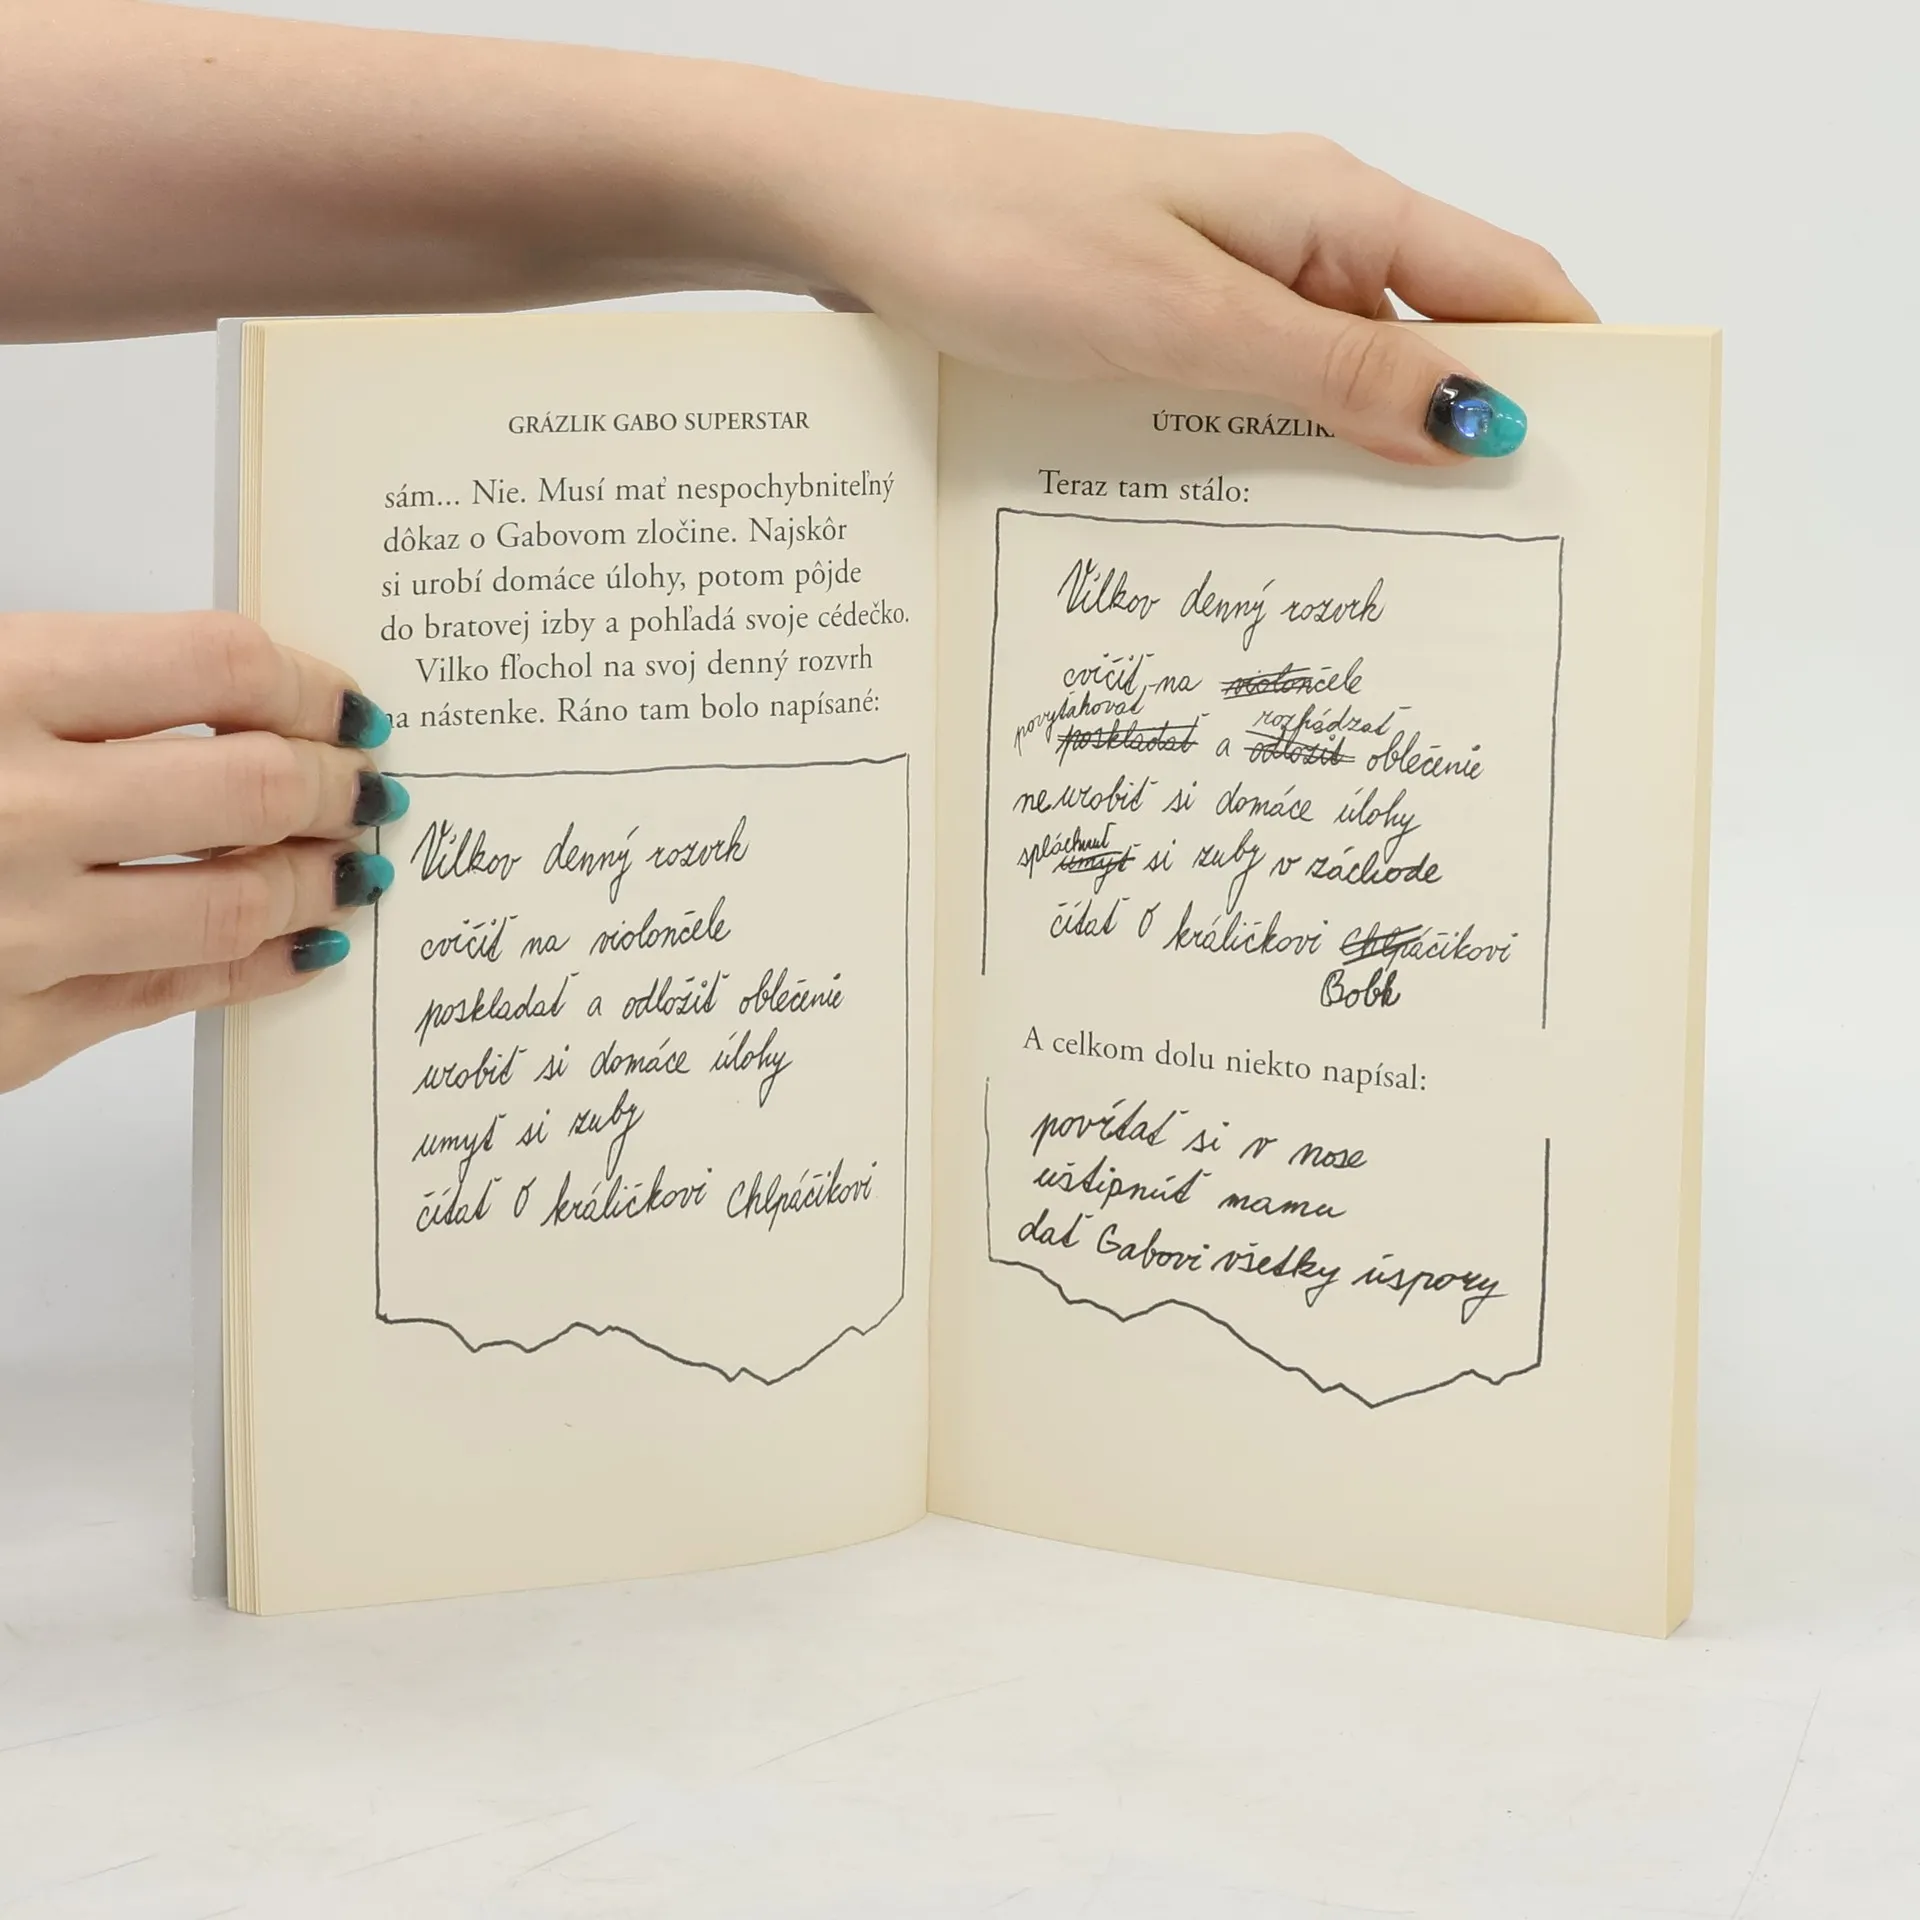 GRÁZLIK GABO SUPERSTAR
sám... Nie. Musí mať nespochybniteľný
dôkaz o Gabovom zločine. Najskôr
si urobí domáce úlohy, potom pôjde
do bratovej izby a pohľadá svoje cédečko.
Vilko fľochol na svoj denný rozvrh
na nástenke. Ráno tam bolo napísané:
Vilkov denný rozvrh
cvičiť na violončele
poskladať a odložiť oblečenie
urobiť si domáce úlohy
umyť si zuby
čítať o králičkovi Chlpáčikovi
ÚTOK GRÁZLIK
Teraz tam stálo:
Vilkov denný rozvrh
cvičiť na violončele
povyťahovať rozhádzať
poskladať a odložiť oblečenie
neurobiť si domáce úlohy
spláchnuť
umyť si zuby v záchode
čítať o králičkovi Chlpáčikovi
A celkom dolu niekto napísal:
povŕtať si v nose
uštipnúť mamu
dať Gabovi všetky úspory